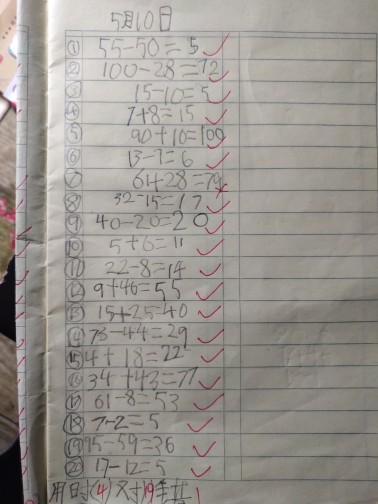 5月10日
① 55-50=5
② 100-28=72
③ 15-10=5
④ 7+8=15
⑤ 90+10=100
⑥ 13-7=6
⑦ 61+28=79
⑧ 32-15=17
⑨ 40-20=20
⑩ 5+6=11
⑪ 22-8=14
⑫ 9+46=55
⑬ 15+25=40
⑭ 73-44=29
⑮ 4+18=22
⑯ 34+43=77
⑰ 61-8=53
⑱ 7-2=5
⑲ 95-59=36
⑳ 17-12=5
用时(4)对19错1